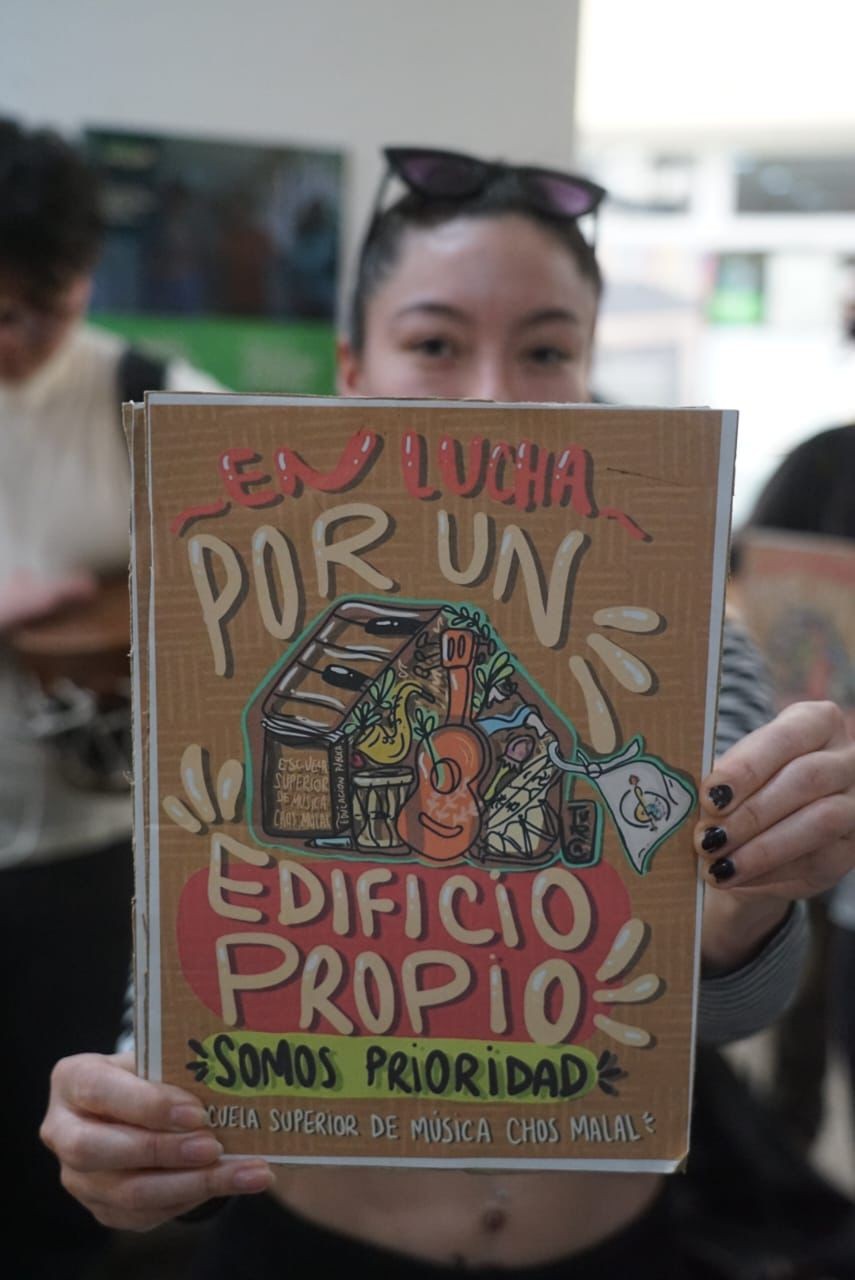 EN LUCHA
POR UN
ESCUELA
SUPERIOR
DE MÚSICA
CHOS MALAL
EDUCACIÓN PÚBLICA
EDIFICIO
PROPIO
SOMOS PRIORIDAD
CUELA SUPERIOR DE MÚSICA CHOS MALAL